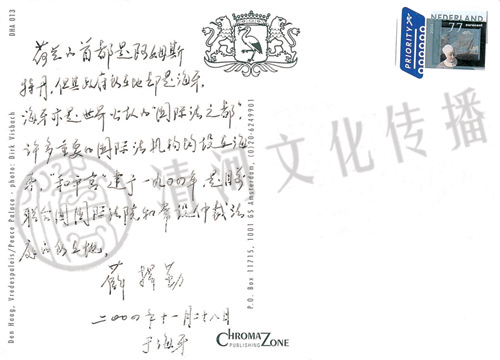 DHA 013
荷兰的首都是阿姆斯
特丹，但其政府所在地却是海牙。
海牙亦是世界公认的国际法之都，
许多重要的国际法机构均设在海
牙。"和平宫"建于一九〇四年，是目前
联合国国际法院和常设仲裁法
庭的所在地。
薛捍勤
二〇〇四年十一月二十八日
于海牙
Den Haag, Vredespaleis/Peace Palace - photo: Dirk Visbach
P.O. Box 11715, 1001 GS Amsterdam, (0)20-6249901
CHROMAZONE
PUBLISHING
PRIORITY
NEDERLAND
77 eurocent
文化传播